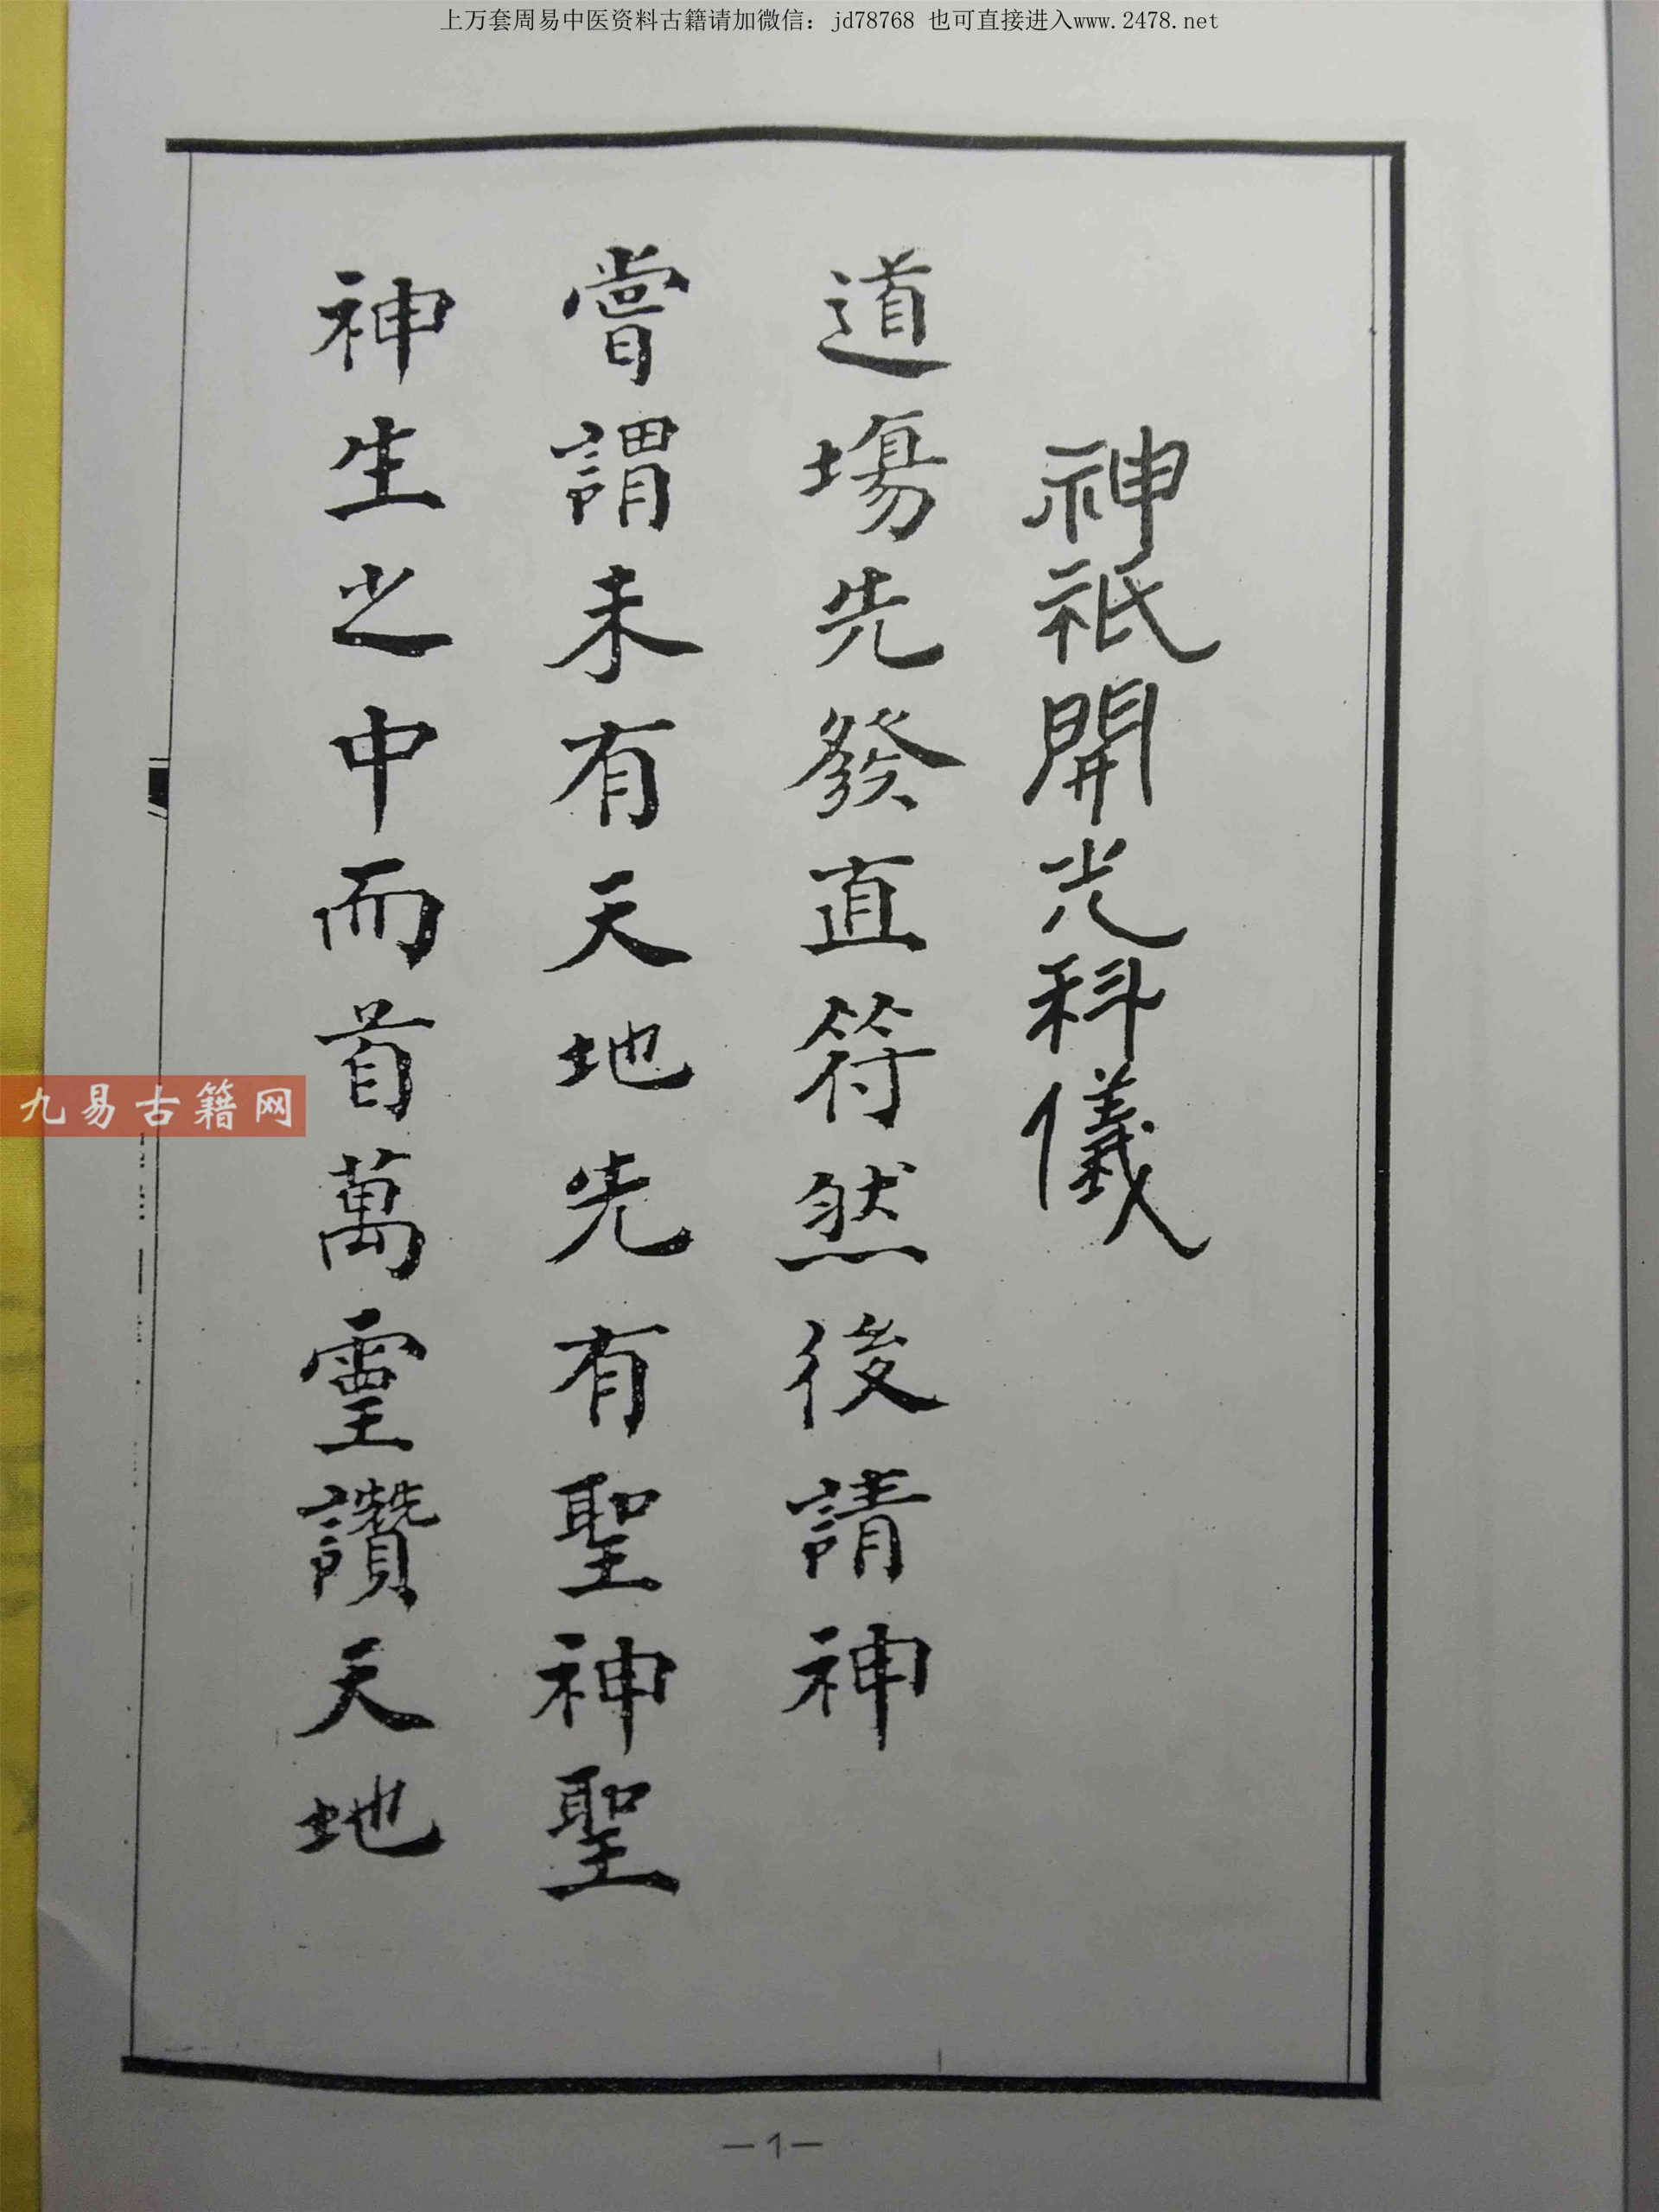 上万套周易中医资料古籍请加微信：jd78768 也可直接进入www.2478.net
神祇開光科儀
道場先發直符然後請神
嘗謂未有天地先有聖神聖
神生之中而首萬靈讚天地
九易古籍网
—1—